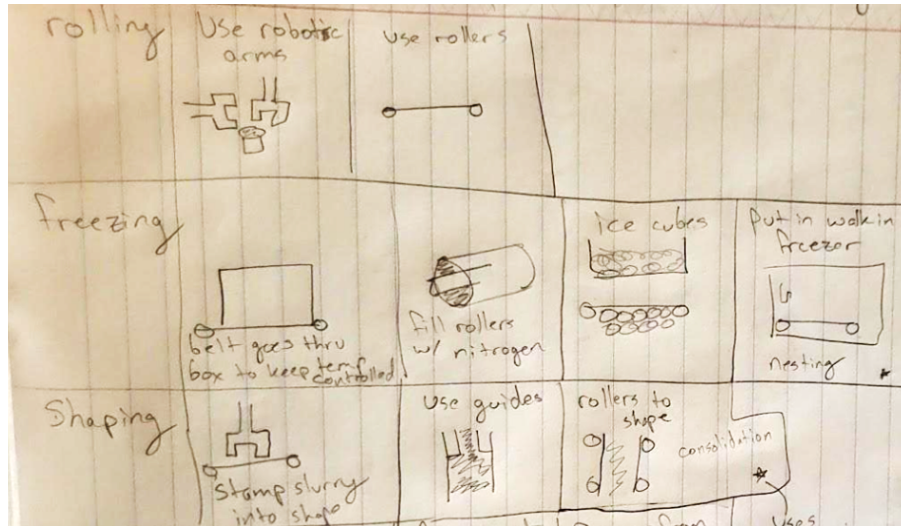 rolling
Use robotic
arms
use rollers
freezing
belt goes thru
box to keep temp
controlled
fill rollers
w/ nitrogen
ice cubes
Put in walk in
freezor
nesting
Shaping
Stamp slurry
into shape
use guides
rollers to
shape
consolidation
from
uses